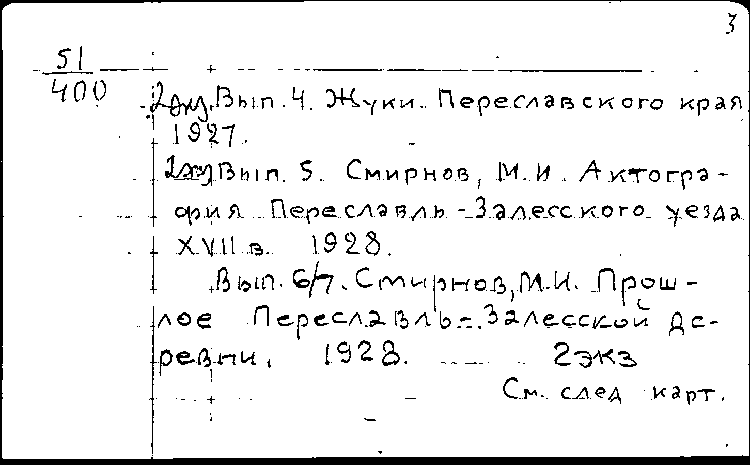 3
51
400
2экз Вып. 4. Жуки Переславского края
1927.
2экз Вып. 5. Смирнов, М.И. Актогра-
фия Переславль-Залесского уезда
XVII в. 1928.
Вып. 6/7. Смирнов, М.И. Прош-
лое Переславль-Залесской де-
ревни. 1928. 2экз
См. след карт.